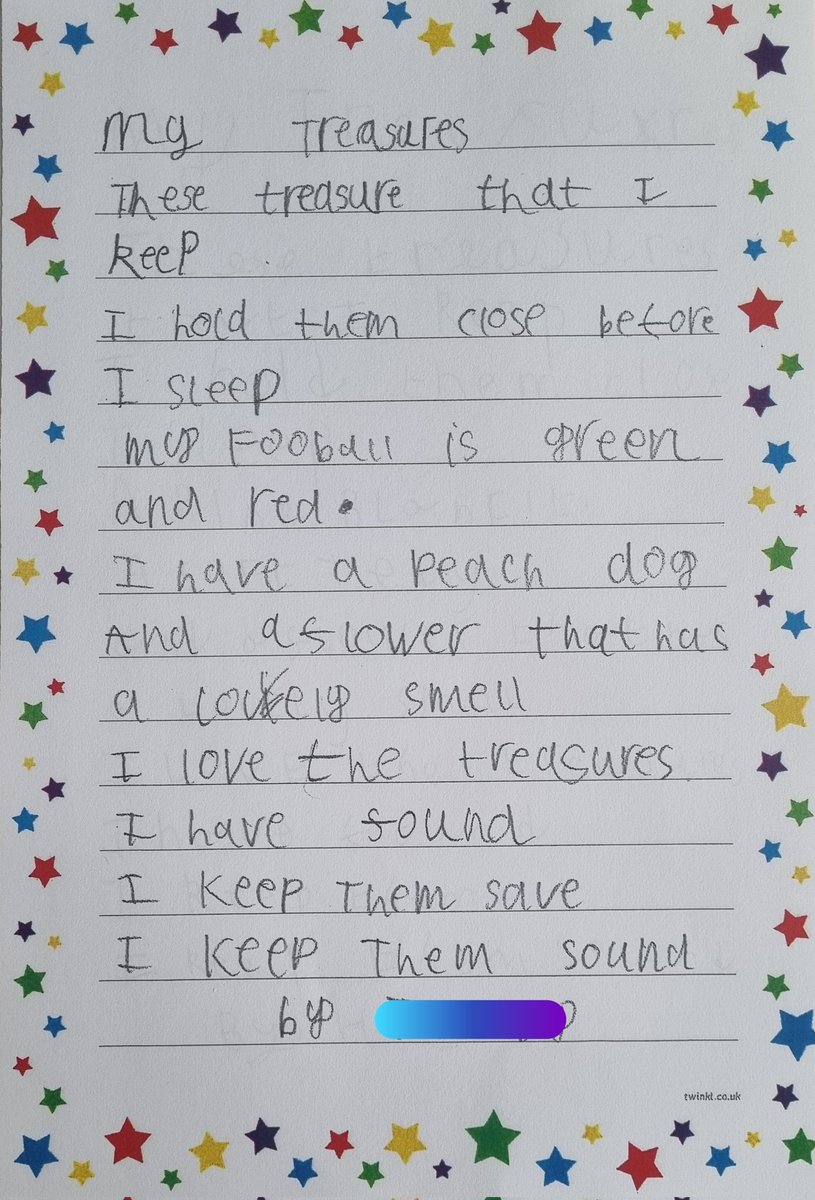 My Treasures
These treasure that I
keep
I hold them close before
I sleep
my Fooball is green
and red.
I have a peach dog
And a flower that has
a lovely smell
I love the treasures
I have found
I keep Them save
I keep Them sound
by
twinkl.co.uk